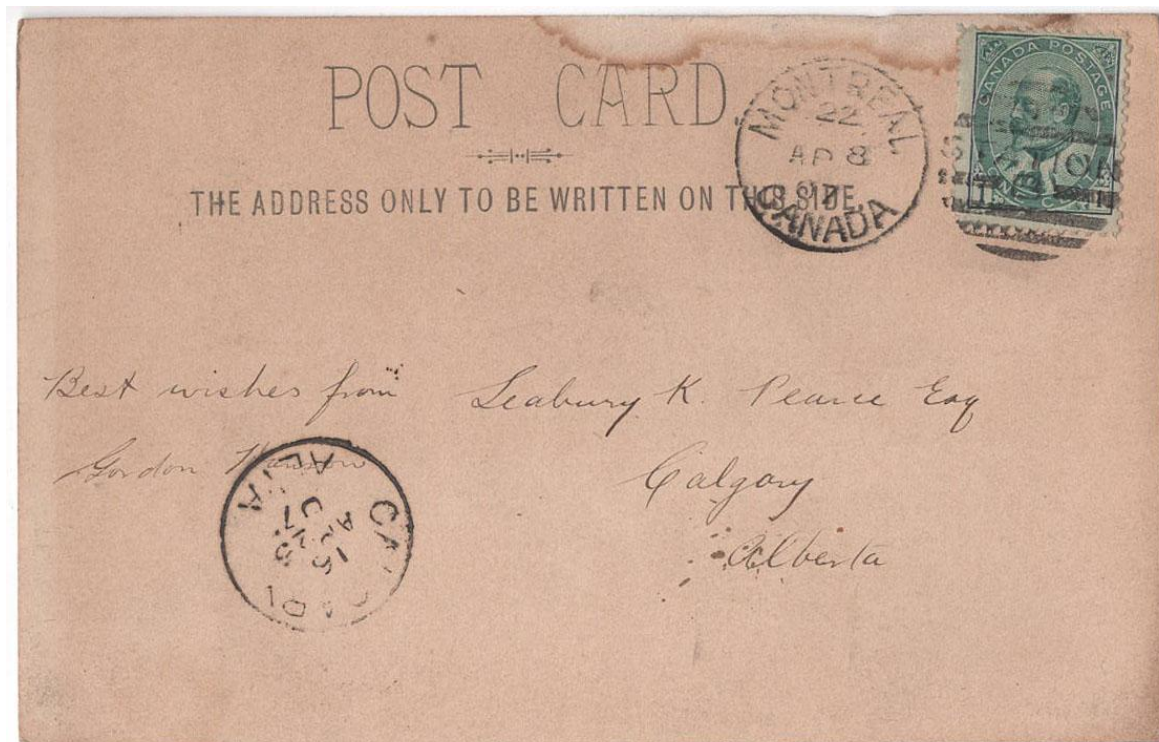 POST CARD
THE ADDRESS ONLY TO BE WRITTEN ON THIS SIDE.
MONTREAL
22
AP 8
07
CANADA
CANADA POSTAGE
ONE CENT
STATION
B
Best wishes from
Gordon
Seabury K. Pearce Esq
Calgary
Alberta
CALGARY
ALTA
AP 15
07